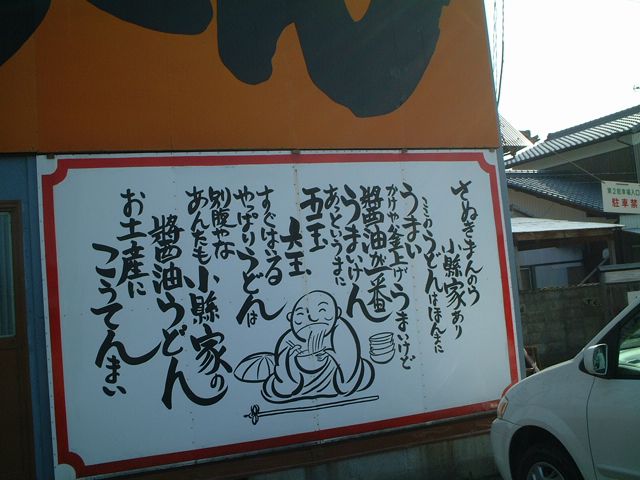 さぬきまんのう
小縣家あり
ここのうどんはほんまに
うまい
かけや釜上げうまいけど
醬油が一番
うまいけん
あとというまに
五玉
大玉、
すぐはいる
やっぱりうどんは
別腹やな
あんたも小縣家の
醬油うどん
お土産に
こうてんまい
第2駐車場入口
駐車禁